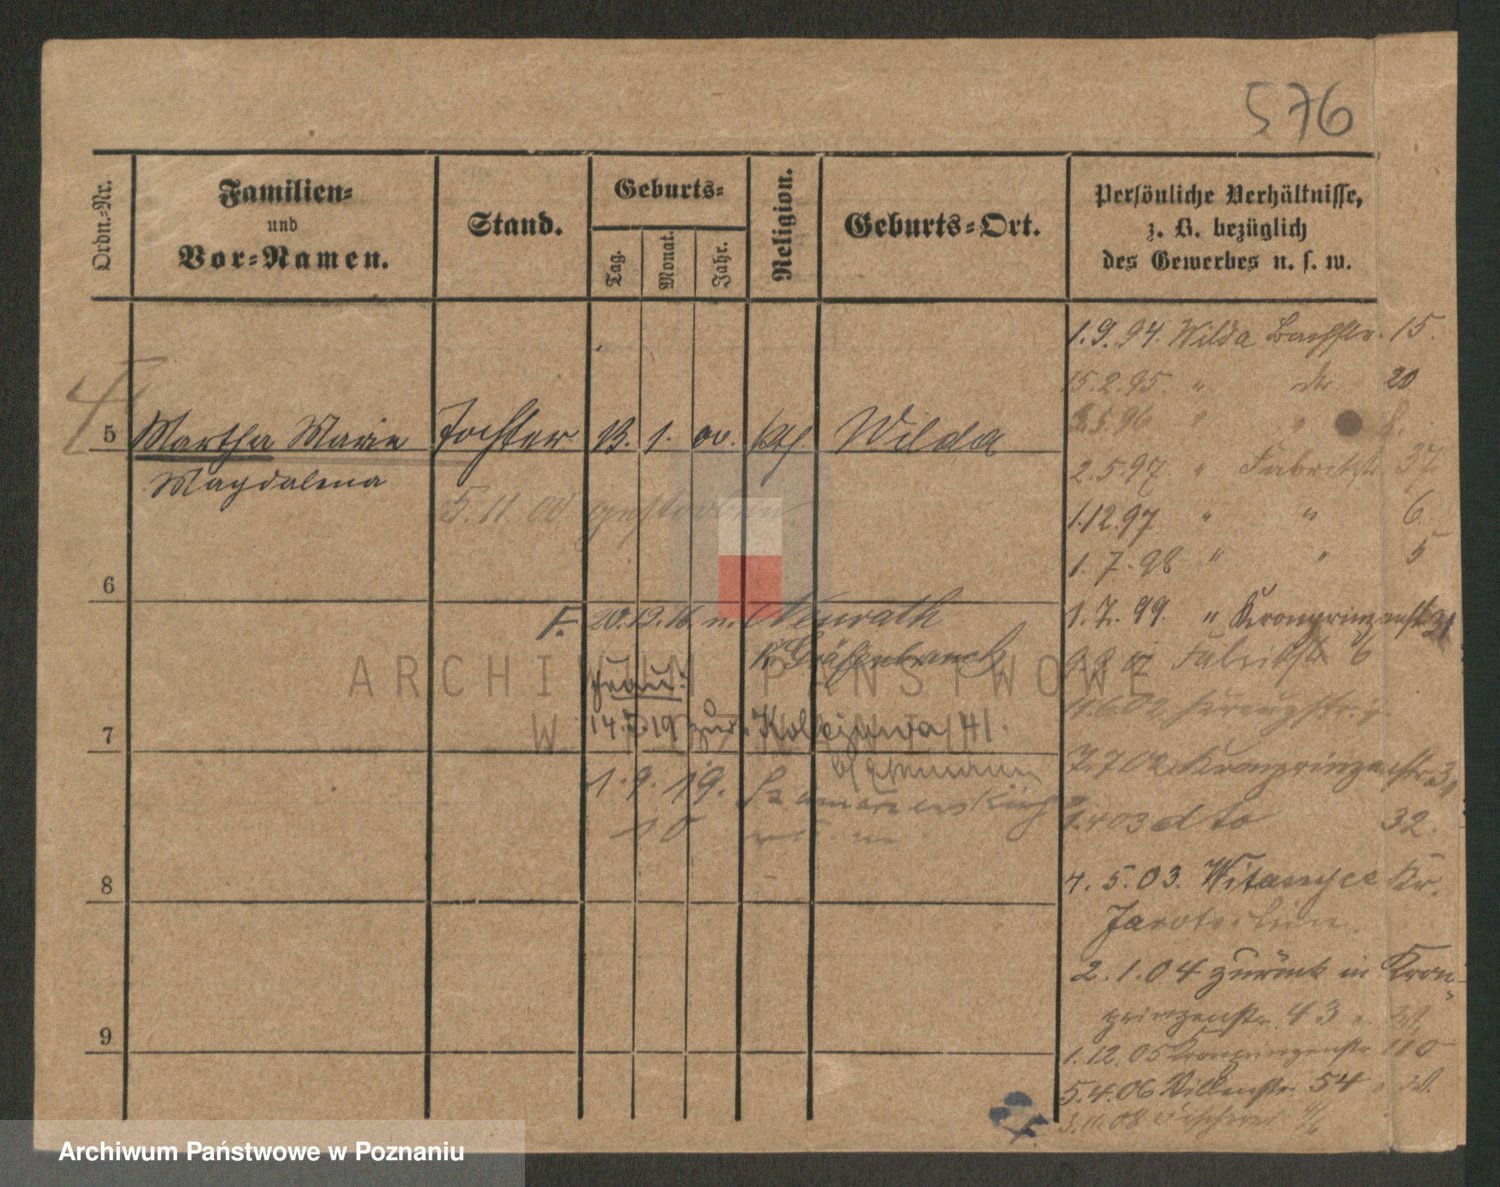 576
Ordn.-Nr.
Familien-
und
Vor-Namen.
Stand.
Geburts-
Tag.
Monat.
Jahr.
Religion.
Geburts-Ort.
Persönliche Verhältnisse,
z. B. bezüglich
des Gewerbes u. s. w.
5
Martha Marie
Magdalena
Tochter
13. 1. 00.
kath
Wilda
5. 11. 00 gestorben
6
F. 20.12.16 n. Neurath
K. Gräfenbrück
Frau:
14.7.19 zur. Kolejowa 41.
7
1. 9. 19.
10
8
9
1.9.94. Wilda Bachstr. 15.
15.2.95. " dto 20
5.96 " " 8.
2.5.97 " Fabrikstr. 37
1.12.97 " " 6
1.7.98 " " 5
1.7.99. " Kronprinzenstr. 31
9.9.01 Fabrikstr 6
11.6.02 Kreuzstr.
7.7.02 Kronprinzenstr. 31
1.4.03 dto 32.
4.5.03. Witaszyce Kr.
Jarotschin.
2.1.04 zurück in Kron-
prinzenstr. 43
1.12.05 Kronprinzenstr. 110
5.4.06 Villenstr. 54
3.11.08
ARCHIWUM PAŃSTWOWE
W
Archiwum Państwowe w Poznaniu